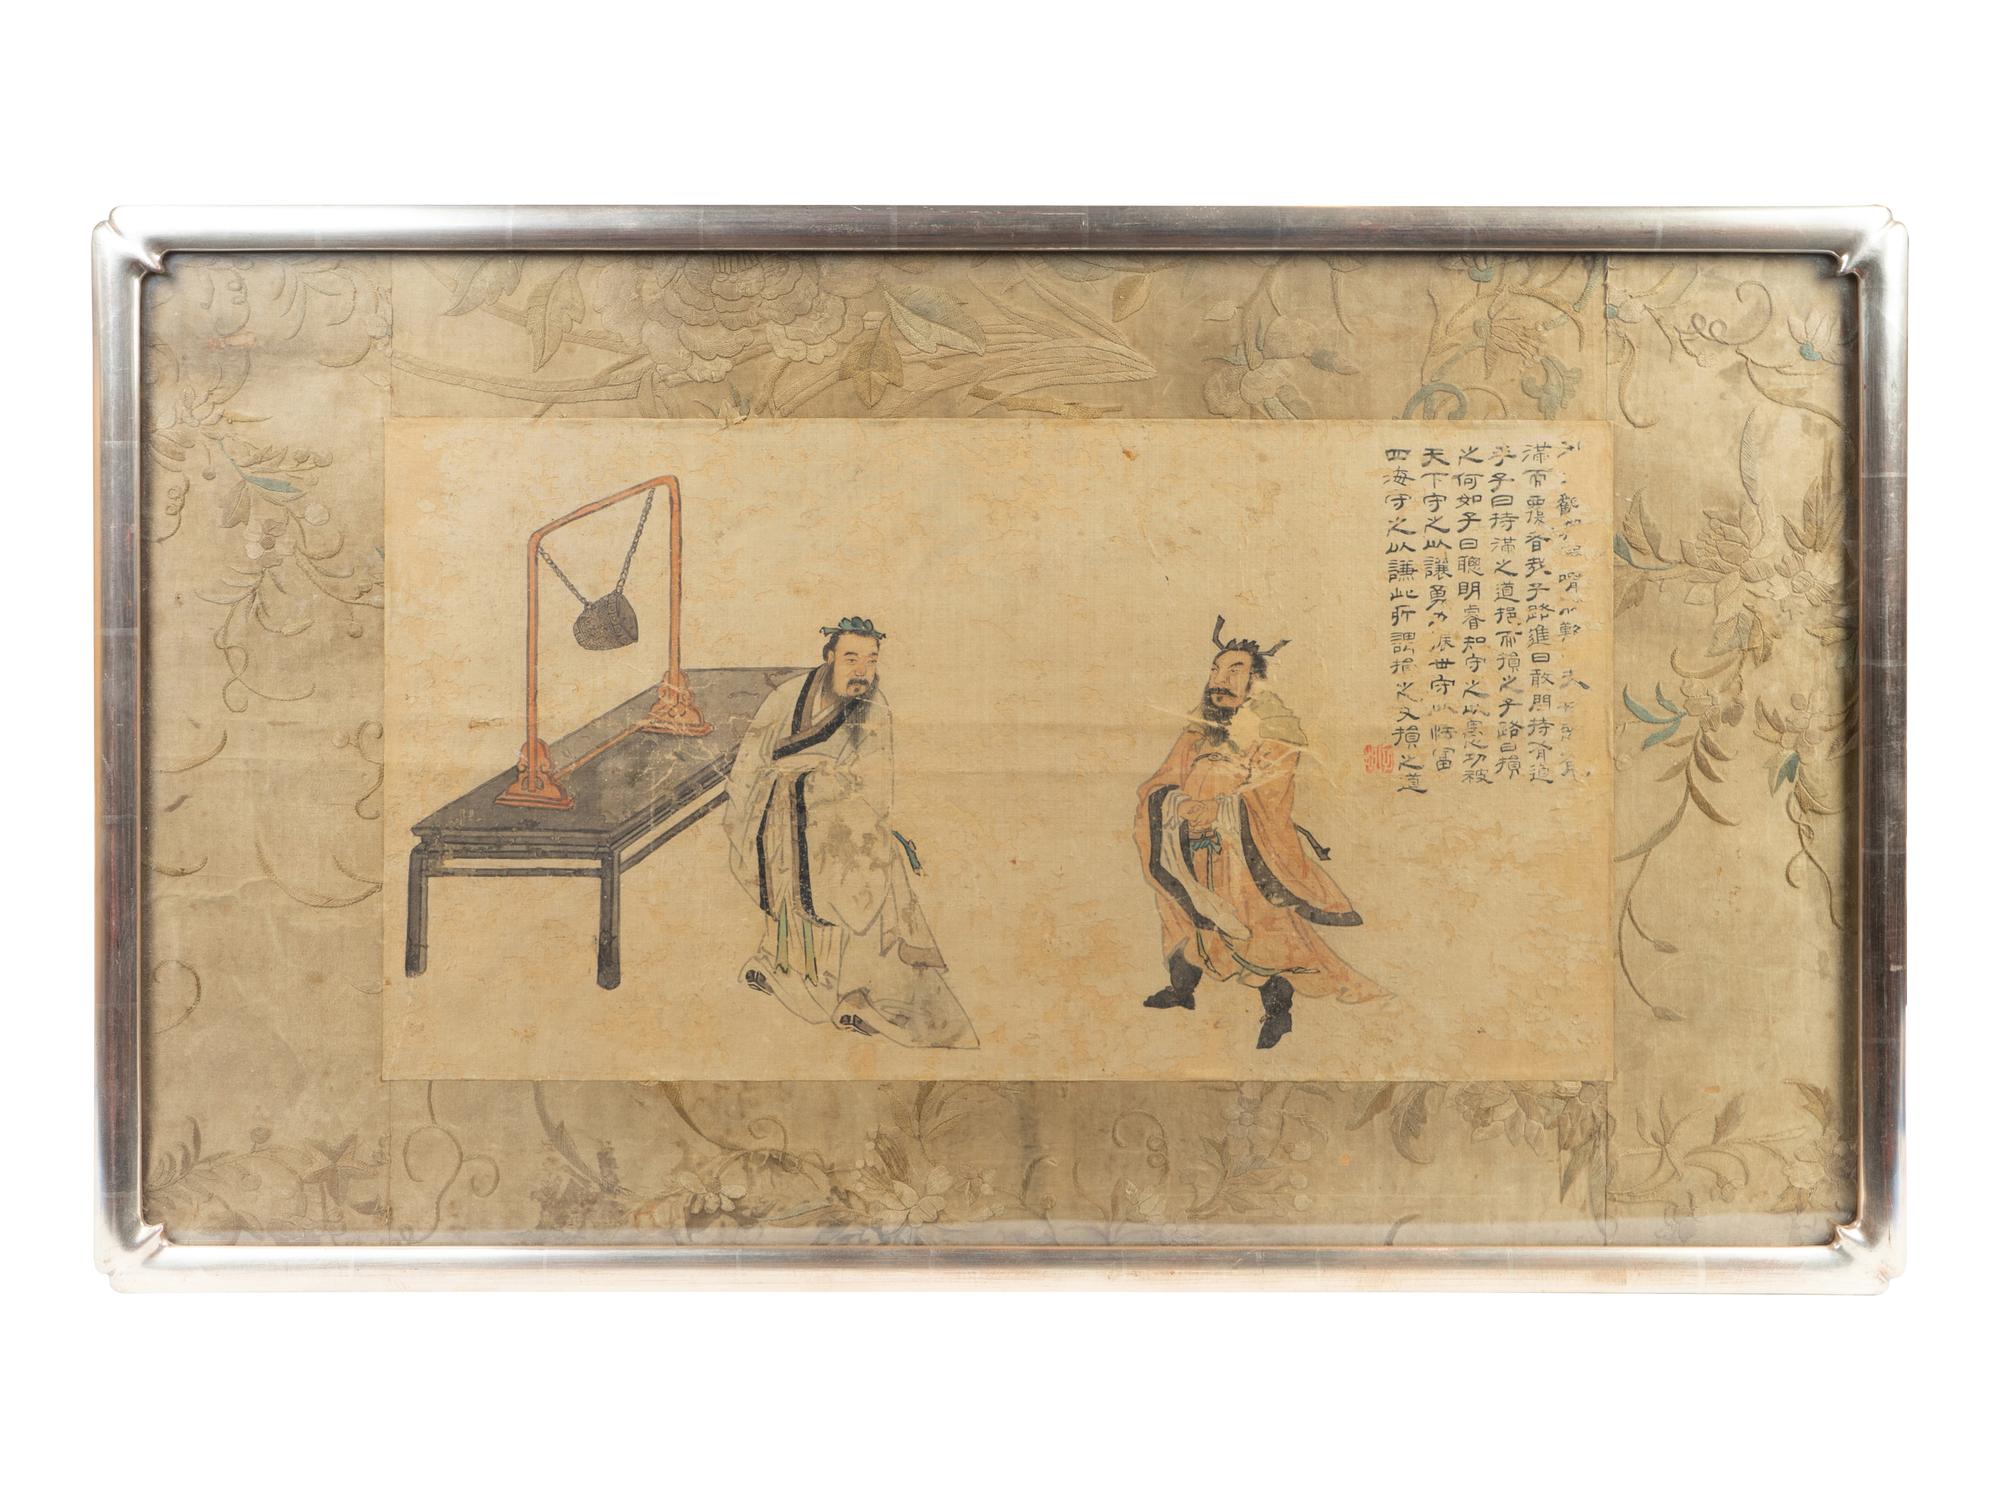 觀喟夫
滿而覆者哉子路進曰敢問持有道
乎子曰持滿之道挹而損之子路曰損
之何如子曰聰明睿知守之以愚功被
天下守之以讓勇力振世守以怯富
四海守之以謙此所謂損之又損之道